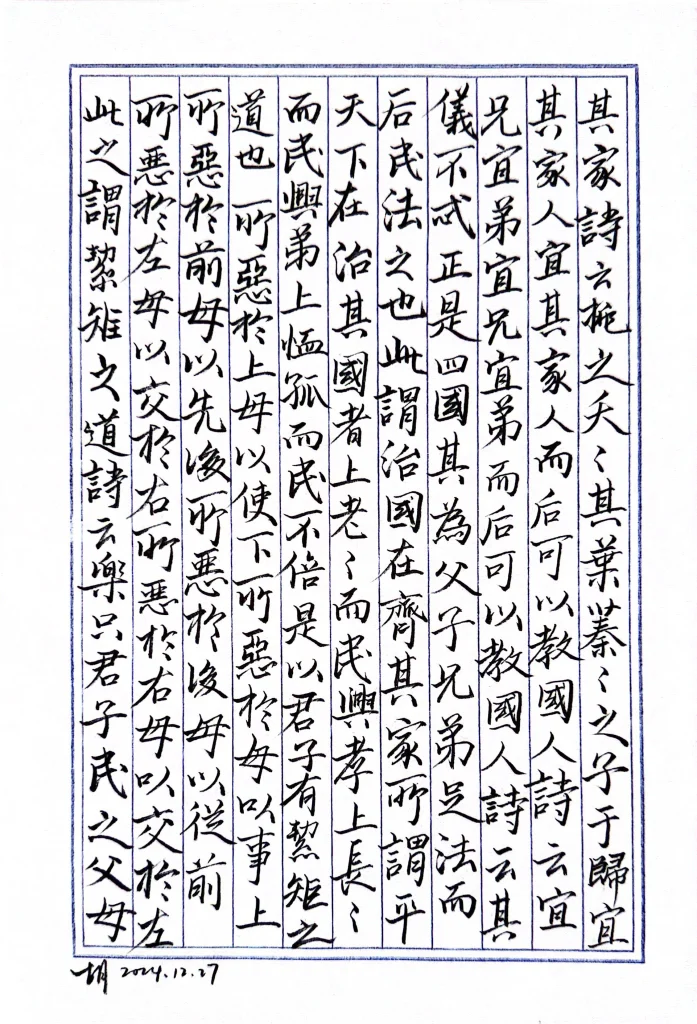 其家詩云桃之夭〻其葉蓁〻之子于歸宜
其家人宜其家人而后可以教國人詩云宜
兄宜弟宜兄宜弟而后可以教國人詩云其
儀不忒正是四國其為父子兄弟足法而
后民法之也此謂治國在齊其家所謂平
天下在治其國者上老〻而民興孝上長〻
而民興弟上恤孤而民不倍是以君子有絜矩之
道也所惡於上毋以使下所惡於毋以事上
所惡於前毋以先後所惡於後毋以從前
所惡於左毋以交於右所惡於右毋以交於左
此之謂絜矩之道詩云樂只君子民之父母
胡 2024.12.27